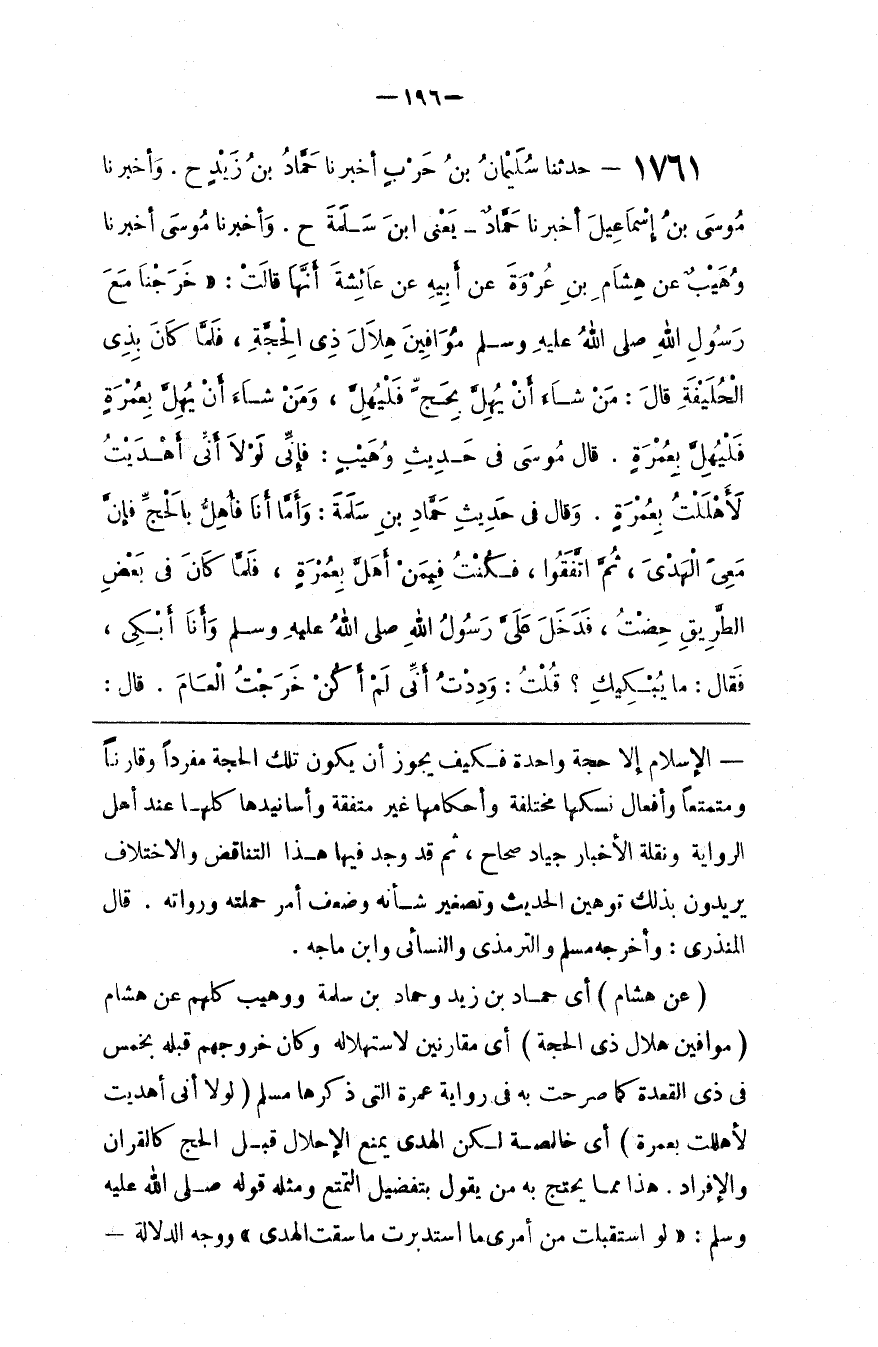 —١٩٦—
١٧٦١ — حدثنا سُلَيْمَانُ بنُ حَرْبٍ أخبرنا حَمَّادُ بنُ زَيْدٍ ح . وَأخبرنا
مُوسَى بنُ إِسْمَاعِيلَ أخبرنا حَمَّادٌ ــ يَعْنِى ابنَ سَـلَمَةَ ح . وَأخبرنا مُوسَى أخبرنا
وُهَيْبٌ عن هِشَامِ بنِ عُرْوَةَ عن أَبِيهِ عن عَائِشَةَ أَنَّهَا قالَتْ : « خَرَجْنَا مَعَ
رَسُولِ اللهِ صلى اللهُ عليهِ وسـلم مُوَافِينَ هِلاَلَ ذِى الْحِجَّةِ ، فَلَمَّا كَانَ بِذِى
الْحُلَيْفَةِ قالَ : مَنْ شَـاءَ أَنْ يُهِلَّ بِحَجٍّ فَلْيُهِلَّ ، وَمَنْ شَـاءَ أَنْ يُهِلَّ بِعُمْرَةٍ
فَلْيُهِلَّ بِعُمْرَةٍ . قال مُوسَى فى حَـدِيثِ وُهَيْبٍ : فإِنِّى لَوْلاَ أَنِّى أَهْـدَيْتُ
لَأَهْلَلْتُ بِعُمْرَةٍ . وَقال فى حَدِيثِ حَمَّادِ بنِ سَلَمَةَ : وَأَمَّا أَنَا فأُهِلُّ بالْحَجِّ فإِنَّ
مَعِىَ الْهَدْىَ ، ثُمَّ اتَّفَقُوا ، فَـكُنْتُ فِيمَنْ أَهَلَّ بِعُمْرَةٍ ، فَلَمَّا كَانَ فى بَعْضِ
الطَّرِيقِ حِضْتُ ، فَدَخَلَ عَلَىَّ رَسُولُ اللهِ صلى اللهُ عليهِ وسـلم وَأَنَا أَبْـكِى ،
فَقال : ما يُبْـكِيكِ ؟ قُلْتُ : وَدِدْتُ أَنِّى لَمْ أَكُنْ خَرَجْتُ الْعَـامَ . قال :
— الإسلام إلا حجة واحدة فـكيف يجوز أن يكون تلك الحجة مفرداً وقارنـاً
ومتمتعاً وأفعال نسكها مختلفة وأحكامها غير متفقة وأسانيدها كلهـا عند أهل
الرواية ونقلة الأخبار جياد صحاح ، ثم قد وجد فيها هـذا التناقض والاختلاف
يريدون بذلك توهين الحديث وتصغير شـأنه وضعف أمر حملته ورواته . قال
المنذرى : وأخرجه مسلم والترمذى والنسائى وابن ماجه .
( عن هشام ) أى حمـاد بن زيد وحماد بن سلمة ووهيب كلهم عن هشام
( موافين هلال ذى الحجة ) أى مقارنين لاستهلاله وكان خروجهم قبله بخمس
فى ذى القعدة كما صرحت به فى رواية عمرة التى ذكرها مسلم ( لولا أنى أهديت
لأهللت بعمرة ) أى خالصـة لـكن الهدى يمنع الإحلال قبـل الحج كالقران
والإفراد . هذا ممـا يحتج به من يقول بتفضيل التمتع ومثله قوله صـلى الله عليه
وسلم : « لو استقبلت من أمرى ما استدبرت ما سقت الهدى » ووجه الدلالة —